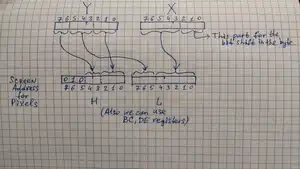 Y X
7 6 5 4 3 2 1 0 7 6 5 4 3 2 1 0
This part for the
bit shift in the byte
Screen
Address
for
Pixels
0 1 0
7 6 5 4 3 2 1 0 7 6 5 4 3 2 1 0
H L
(Also we can use
BC, DE registers)